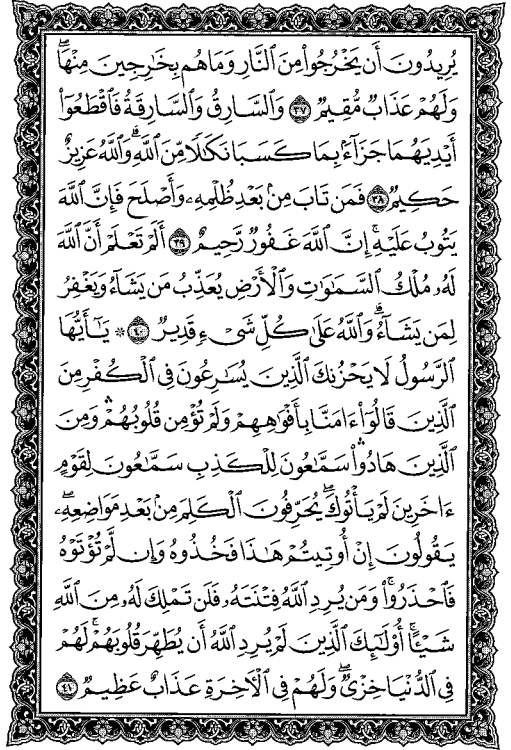 يُرِيدُونَ أَن يَخْرُجُوا۟ مِنَ ٱلنَّارِ وَمَا هُم بِخَٰرِجِينَ مِنْهَاۖ
وَلَهُمْ عَذَابٌ مُّقِيمٌ ٣٧ وَٱلسَّارِقُ وَٱلسَّارِقَةُ فَٱقْطَعُوٓا۟
أَيْدِيَهُمَا جَزَآءًۢ بِمَا كَسَبَا نَكَٰلًا مِّنَ ٱللَّهِۗ وَٱللَّهُ عَزِيزٌ
حَكِيمٌ ٣٨ فَمَن تَابَ مِنۢ بَعْدِ ظُلْمِهِۦ وَأَصْلَحَ فَإِنَّ ٱللَّهَ
يَتُوبُ عَلَيْهِۚ إِنَّ ٱللَّهَ غَفُورٌ رَّحِيمٌ ٣٩ أَلَمْ تَعْلَمْ أَنَّ ٱللَّهَ
لَهُۥ مُلْكُ ٱلسَّمَٰوَٰتِ وَٱلْأَرْضِ يُعَذِّبُ مَن يَشَآءُ وَيَغْفِرُ
لِمَن يَشَآءُۗ وَٱللَّهُ عَلَىٰ كُلِّ شَىْءٍ قَدِيرٌ ٤٠ ۞ يَٰٓأَيُّهَا
ٱلرَّسُولُ لَا يَحْزُنكَ ٱلَّذِينَ يُسَٰرِعُونَ فِى ٱلْكُفْرِ مِنَ
ٱلَّذِينَ قَالُوٓا۟ ءَامَنَّا بِأَفْوَٰهِهِمْ وَلَمْ تُؤْمِن قُلُوبُهُمْۛ وَمِنَ
ٱلَّذِينَ هَادُوا۟ۛ سَمَّٰعُونَ لِلْكَذِبِ سَمَّٰعُونَ لِقَوْمٍ
ءَاخَرِينَ لَمْ يَأْتُوكَۖ يُحَرِّفُونَ ٱلْكَلِمَ مِنۢ بَعْدِ مَوَاضِعِهِۦۖ
يَقُولُونَ إِنْ أُوتِيتُمْ هَٰذَا فَخُذُوهُ وَإِن لَّمْ تُؤْتَوْهُ
فَٱحْذَرُوا۟ۚ وَمَن يُرِدِ ٱللَّهُ فِتْنَتَهُۥ فَلَن تَمْلِكَ لَهُۥ مِنَ ٱللَّهِ
شَيْـًٔاۚ أُو۟لَٰٓئِكَ ٱلَّذِينَ لَمْ يُرِدِ ٱللَّهُ أَن يُطَهِّرَ قُلُوبَهُمْۚ لَهُمْ
فِى ٱلدُّنْيَا خِزْىٌۖ وَلَهُمْ فِى ٱلْءَاخِرَةِ عَذَابٌ عَظِيمٌ ٤١